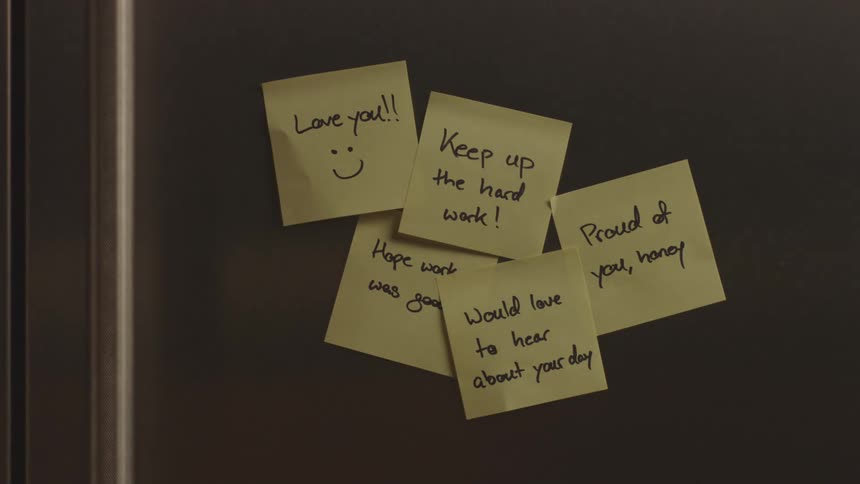 Love you!!
Keep up
the hard
work!
Proud of
you, honey
Hope work
was
Would love
to hear
about your day